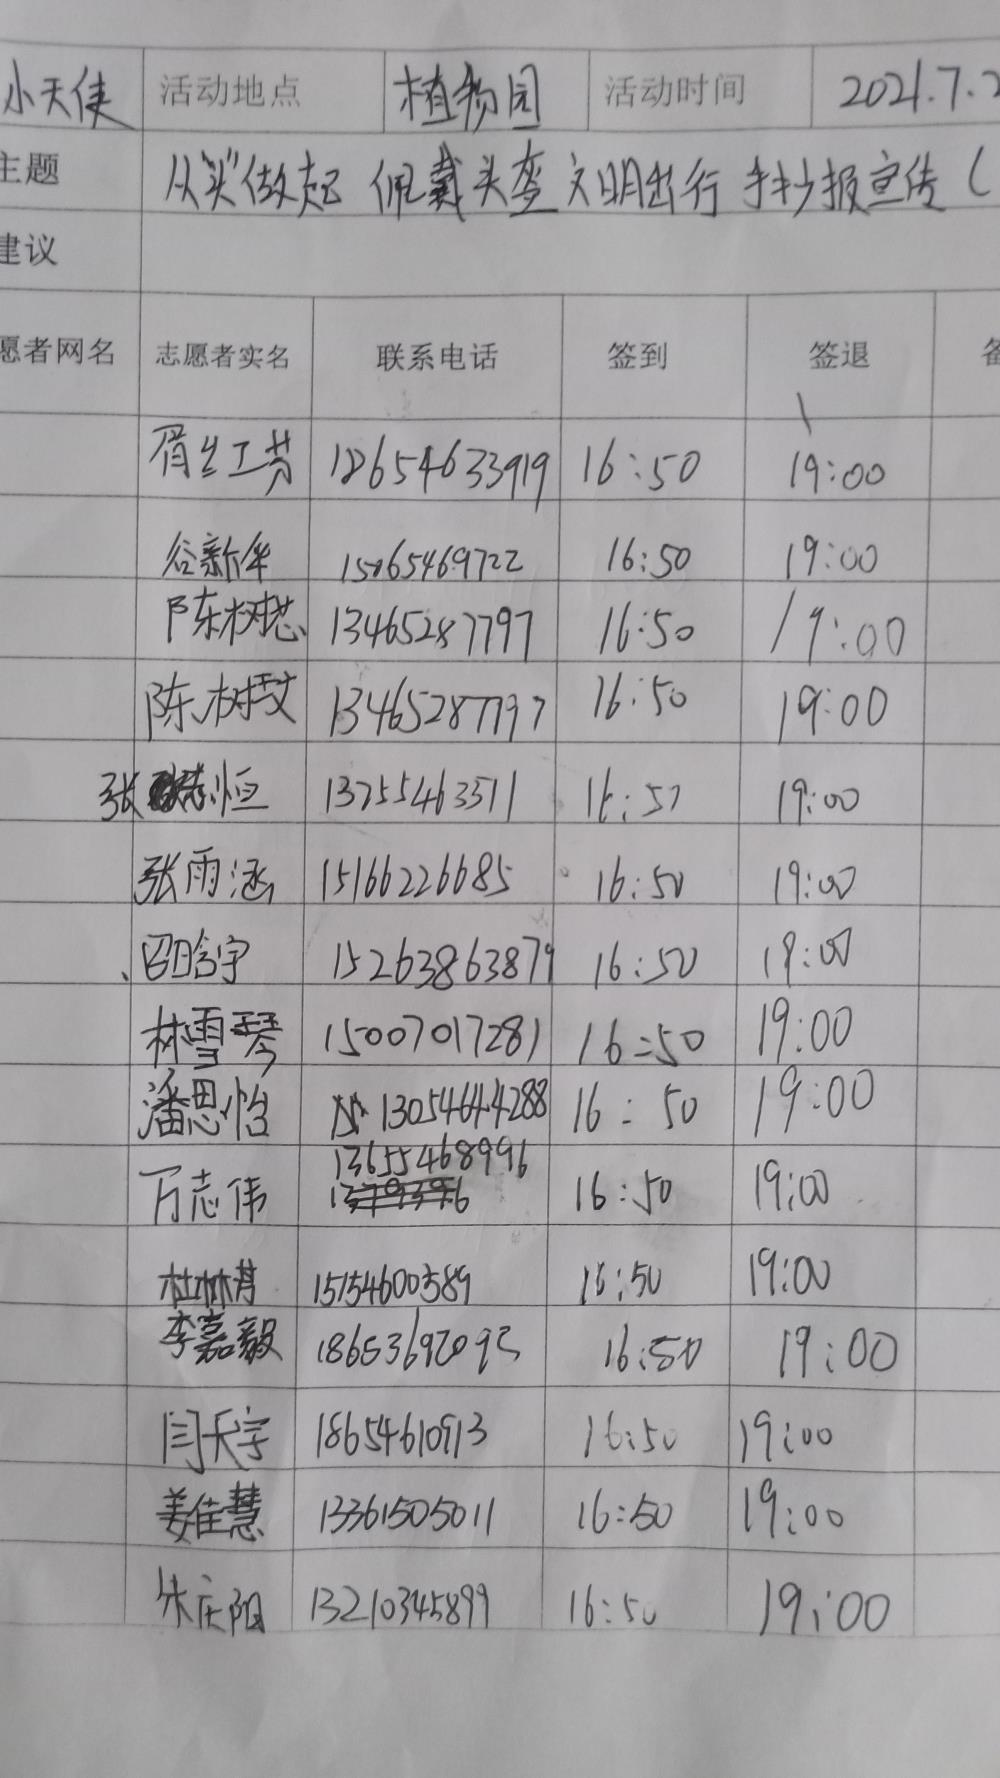 小天使 活动地点 植物园 活动时间 2021.7.2
主题 从“头”做起 佩戴头盔 文明出行 手抄报宣传(
建议
愿者网名 志愿者实名 联系电话 签到 签退 备
18654633919 16:50 19:00
谷新华 15065469722 16:50 19:00
陈树 13465287797 16:50 19:00
陈树玟 13465287797 16:50 19:00
张志恒 13255463511 16:50 19:00
张雨涵 15166226685 16:50 19:00
邵晗宇 15263863879 16:50 19:00
林雪琴 15007017281 16:50 19:00
潘思怡 13054644288 16:50 19:00
13655468996
万志伟 16:50 19:00
杜林 15154600589 16:50 19:00
李嘉毅 16:50 19:00
闫天宇 18654610913 16:50 19:00
姜佳慧 13361505011 16:50 19:00
朱庆阳 13210345899 16:50 19:00